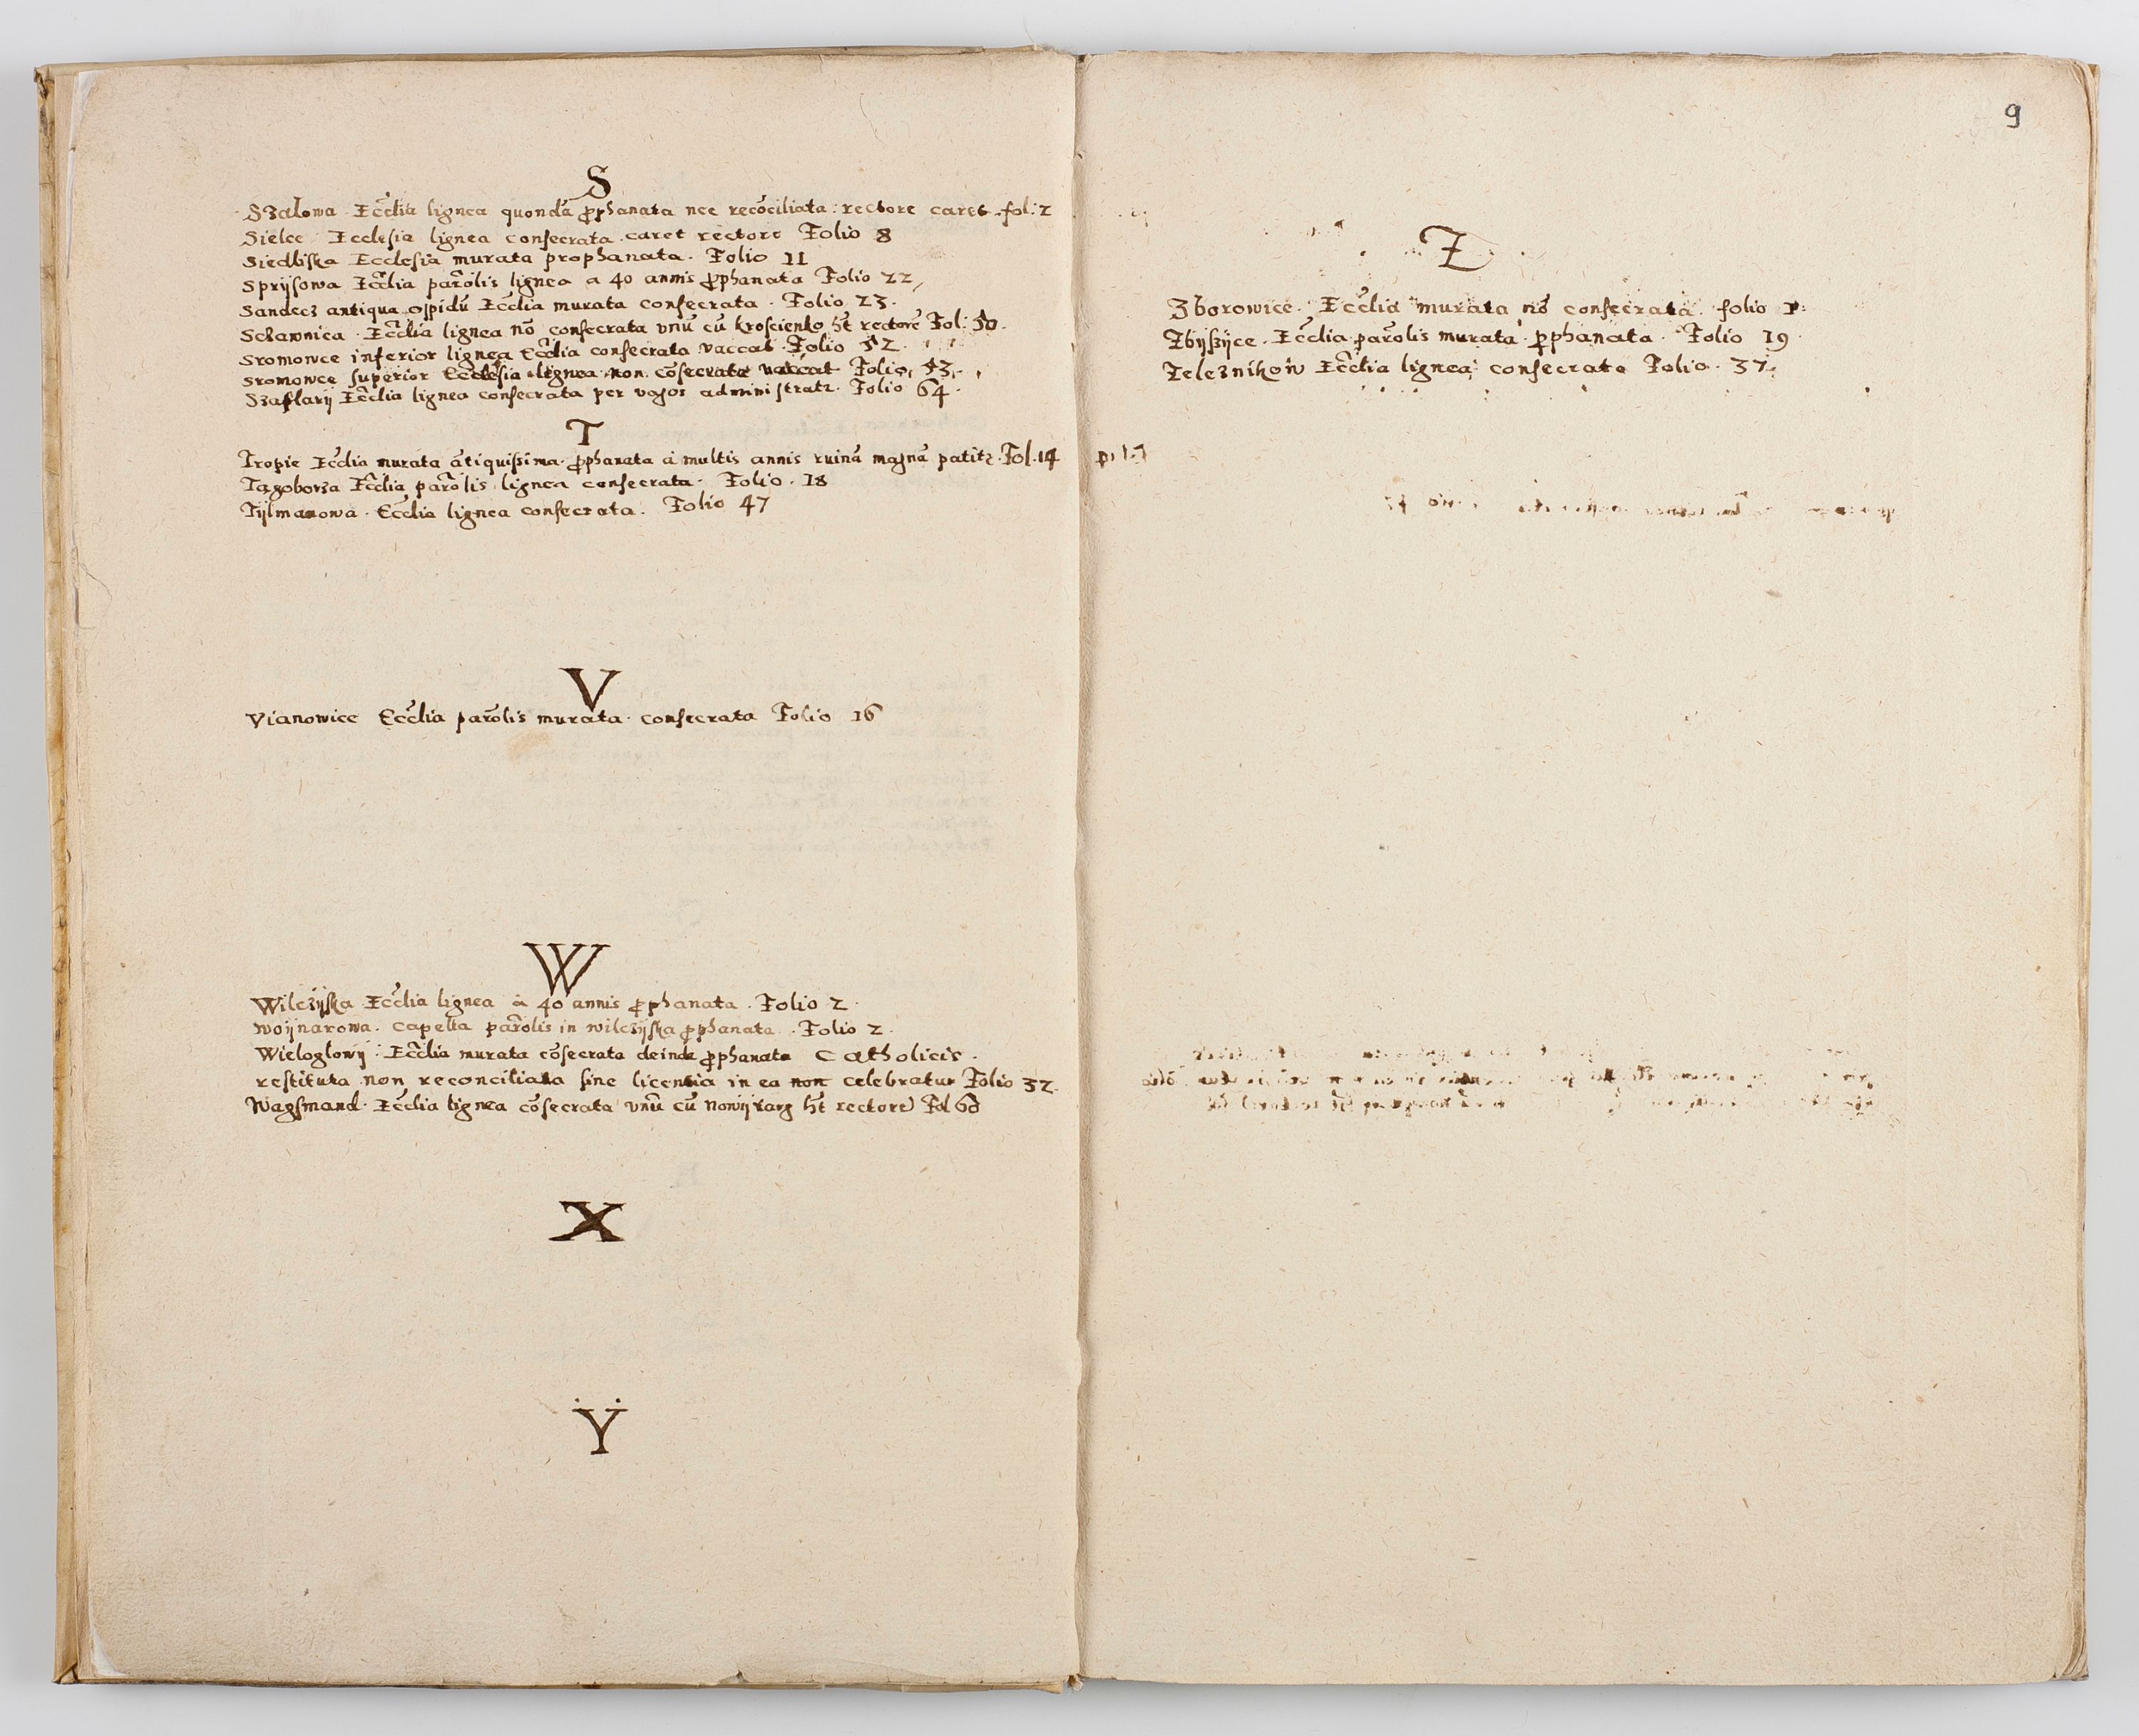 S
Szalowa Eccłia lignea quondā ꝓphanata nec recōciliata: rectore caret fol: 2
Sielce Ecclesia lignea consecrata caret rectore Folio 8
Siedliska Ecclesia murata prophanata. Folio 11
Sprijsowa Eccłia parōlis lignea a 40 annis ꝓphanata Folio 22
Sandecz antiqua oppidū Eccłia murata consecrata. Folio 23.
Sczawnica. Eccłia lignea nō consecrata vnū cū kroscienko ht̄ rectorē Fol: 50.
Sromowce inferior lignea Eccłia consecrata vaccat Folio 52
Sromowce superior Ecclesia lignea non cōsecrata vaccat Folio 53.
Szaflarij Eccłia lignea consecrata per vagos administratr. Folio 64.
T
Tropie Eccłia murata ātiquissima ꝓphanata à multis annis ruinā magnā patitr. Fol. 14
Tagoborza Eccłia parōlis lignea consecrata. Folio. 18
Tijlmanowa. Eccłia lignea consecrata. Folio 47
V
Vianowice Eccłia parōlis murata consecrata Folio 16
W
Wilczijska Eccłia lignea à 40 annis ꝓphanata. Folio 2.
Woijnarowa. Capella parōlis in wilczijska ꝓphanata. Folio 2.
Wieloglowij Eccłia murata cōsecrata deinde ꝓphanata Catholicis.
restituta non reconciliata sine licentia in ea non celebratur Folio 32.
Wagsmand. Eccłia lignea cōsecrata vnū cū nowijtarg ht̄ rectorē Fol 60
X
Ÿ
9
Z
Zborowice. Eccłia murata nō consecrata. folio 1.
Zbijszijce. Eccłia parōlis murata ꝓphanata. Folio 19.
Zeleznikow Eccłia lignea consecrata Folio. 37.